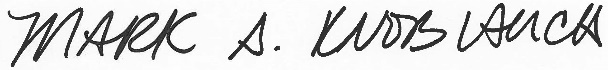 MARK A. KNOBLAUCH